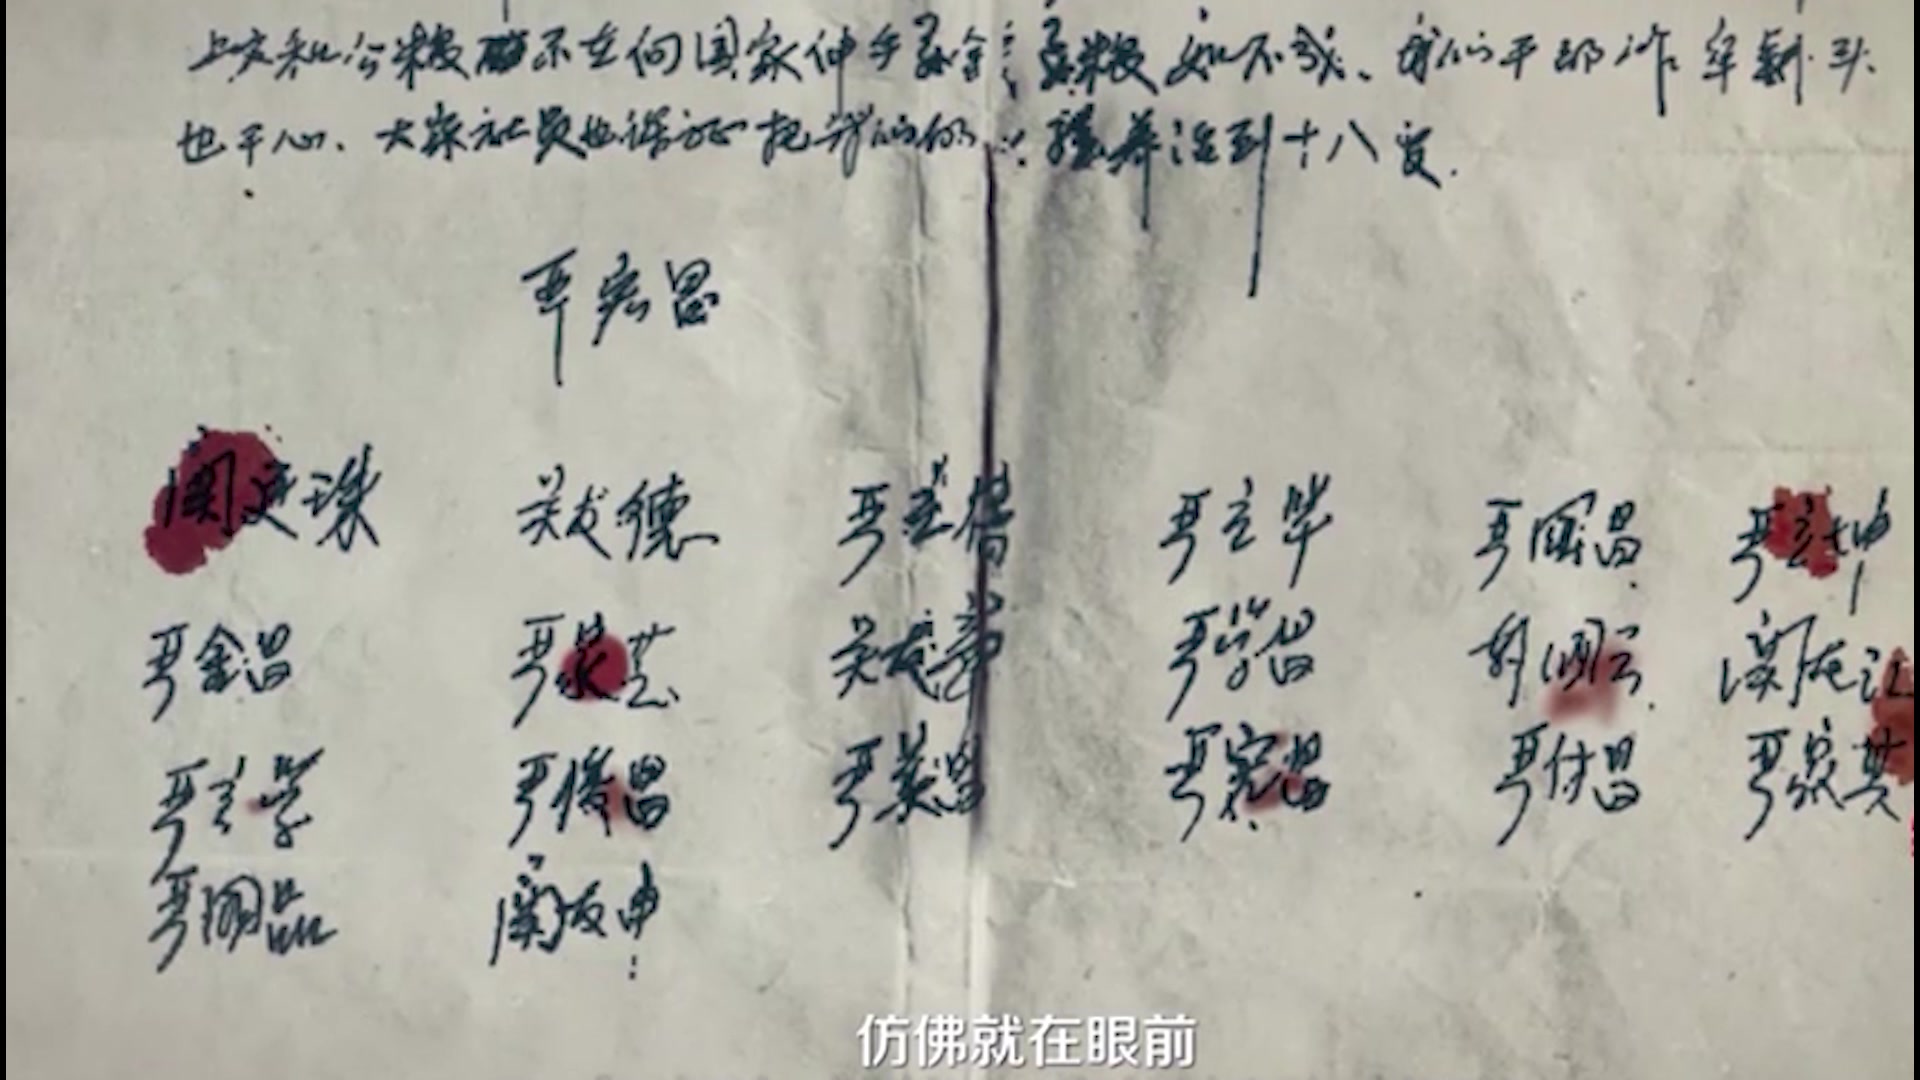 上交和公粮不在向国家伸手要钱要粮如不成、我们干部作牢刹头
也干心、大家社员也保证把我们的小孩养活到十八岁.
严宏昌
关廷珠 关友德 严立符 严立华 严国昌 严立坤
严金昌 严家芝 关友章 严学昌 韩国云 关友江
严立学 严俊昌 严美昌 严宏昌 严付昌 严家其
严国品 关友申
仿佛就在眼前